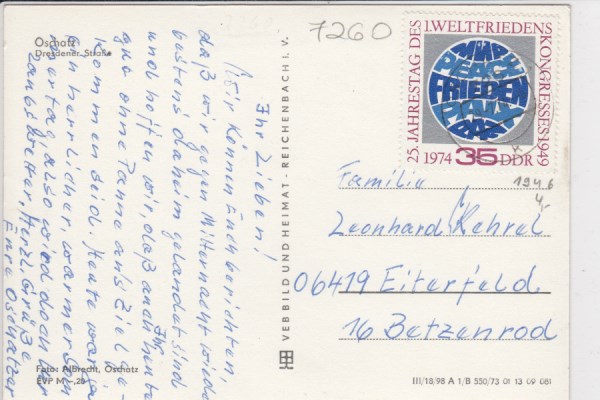 7260
Oschatz
Dresdener Straße
Ihr Lieben!
Wir können Euch berichten,
daß wir gegen Mitternacht wieder
bestens daheim gelandet sind
und hoffen wir, daß auch Ihr
gut ohne Panne ans Ziel ge-
kommen seid. Heute war ja
ein herrlicher, warmer Som
mertag, also wird doch
Herzl. Grüße
Eure Oschatzer
Foto: Albrecht, Oschatz
EVP M -,25
VEB BILD UND HEIMAT · REICHENBACH I. V.
25. JAHRESTAG DES 1. WELTFRIEDENS
KONGRESSES · 1949
МИР
PEACE
FRIEDEN
PAIX
PAZ
1974 35 DDR
1946
4,-
Familie
Leonhard Kehrel
06419 Eiterfeld
16 Betzenrod
III/18/98 A 1/B 550/73 01 13 09 081